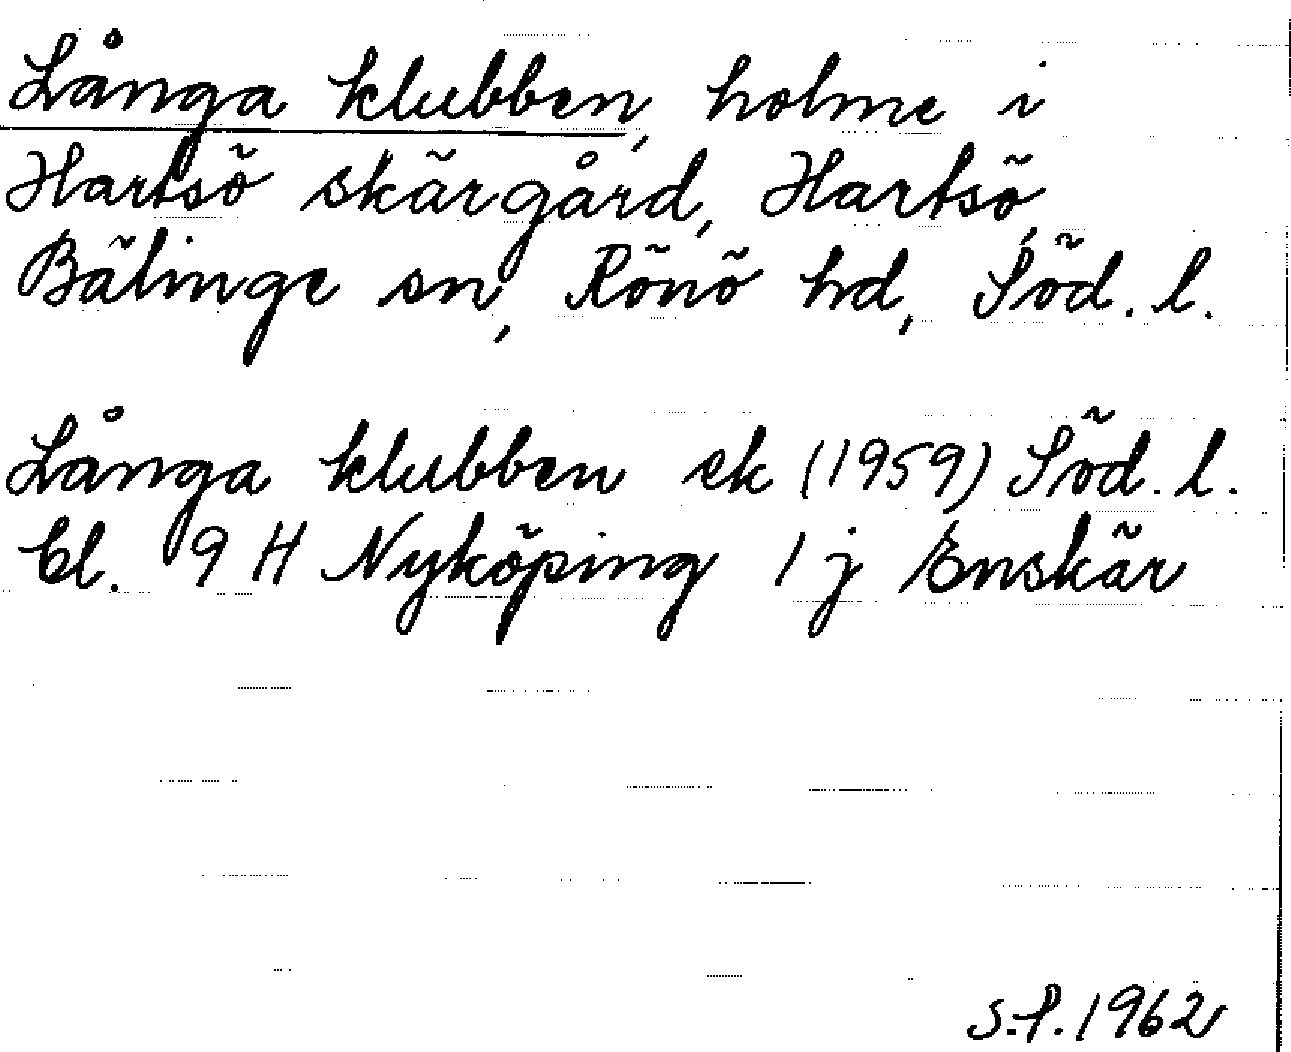 Långa klubben, holme i
Hartsö skärgård, Hartsö,
Bälinge sn, Rönö hd, Söd. l.
Långa klubben ek (1959) Söd. l.
bl. 9 H Nyköping 1 j Enskär
S.P. 1962